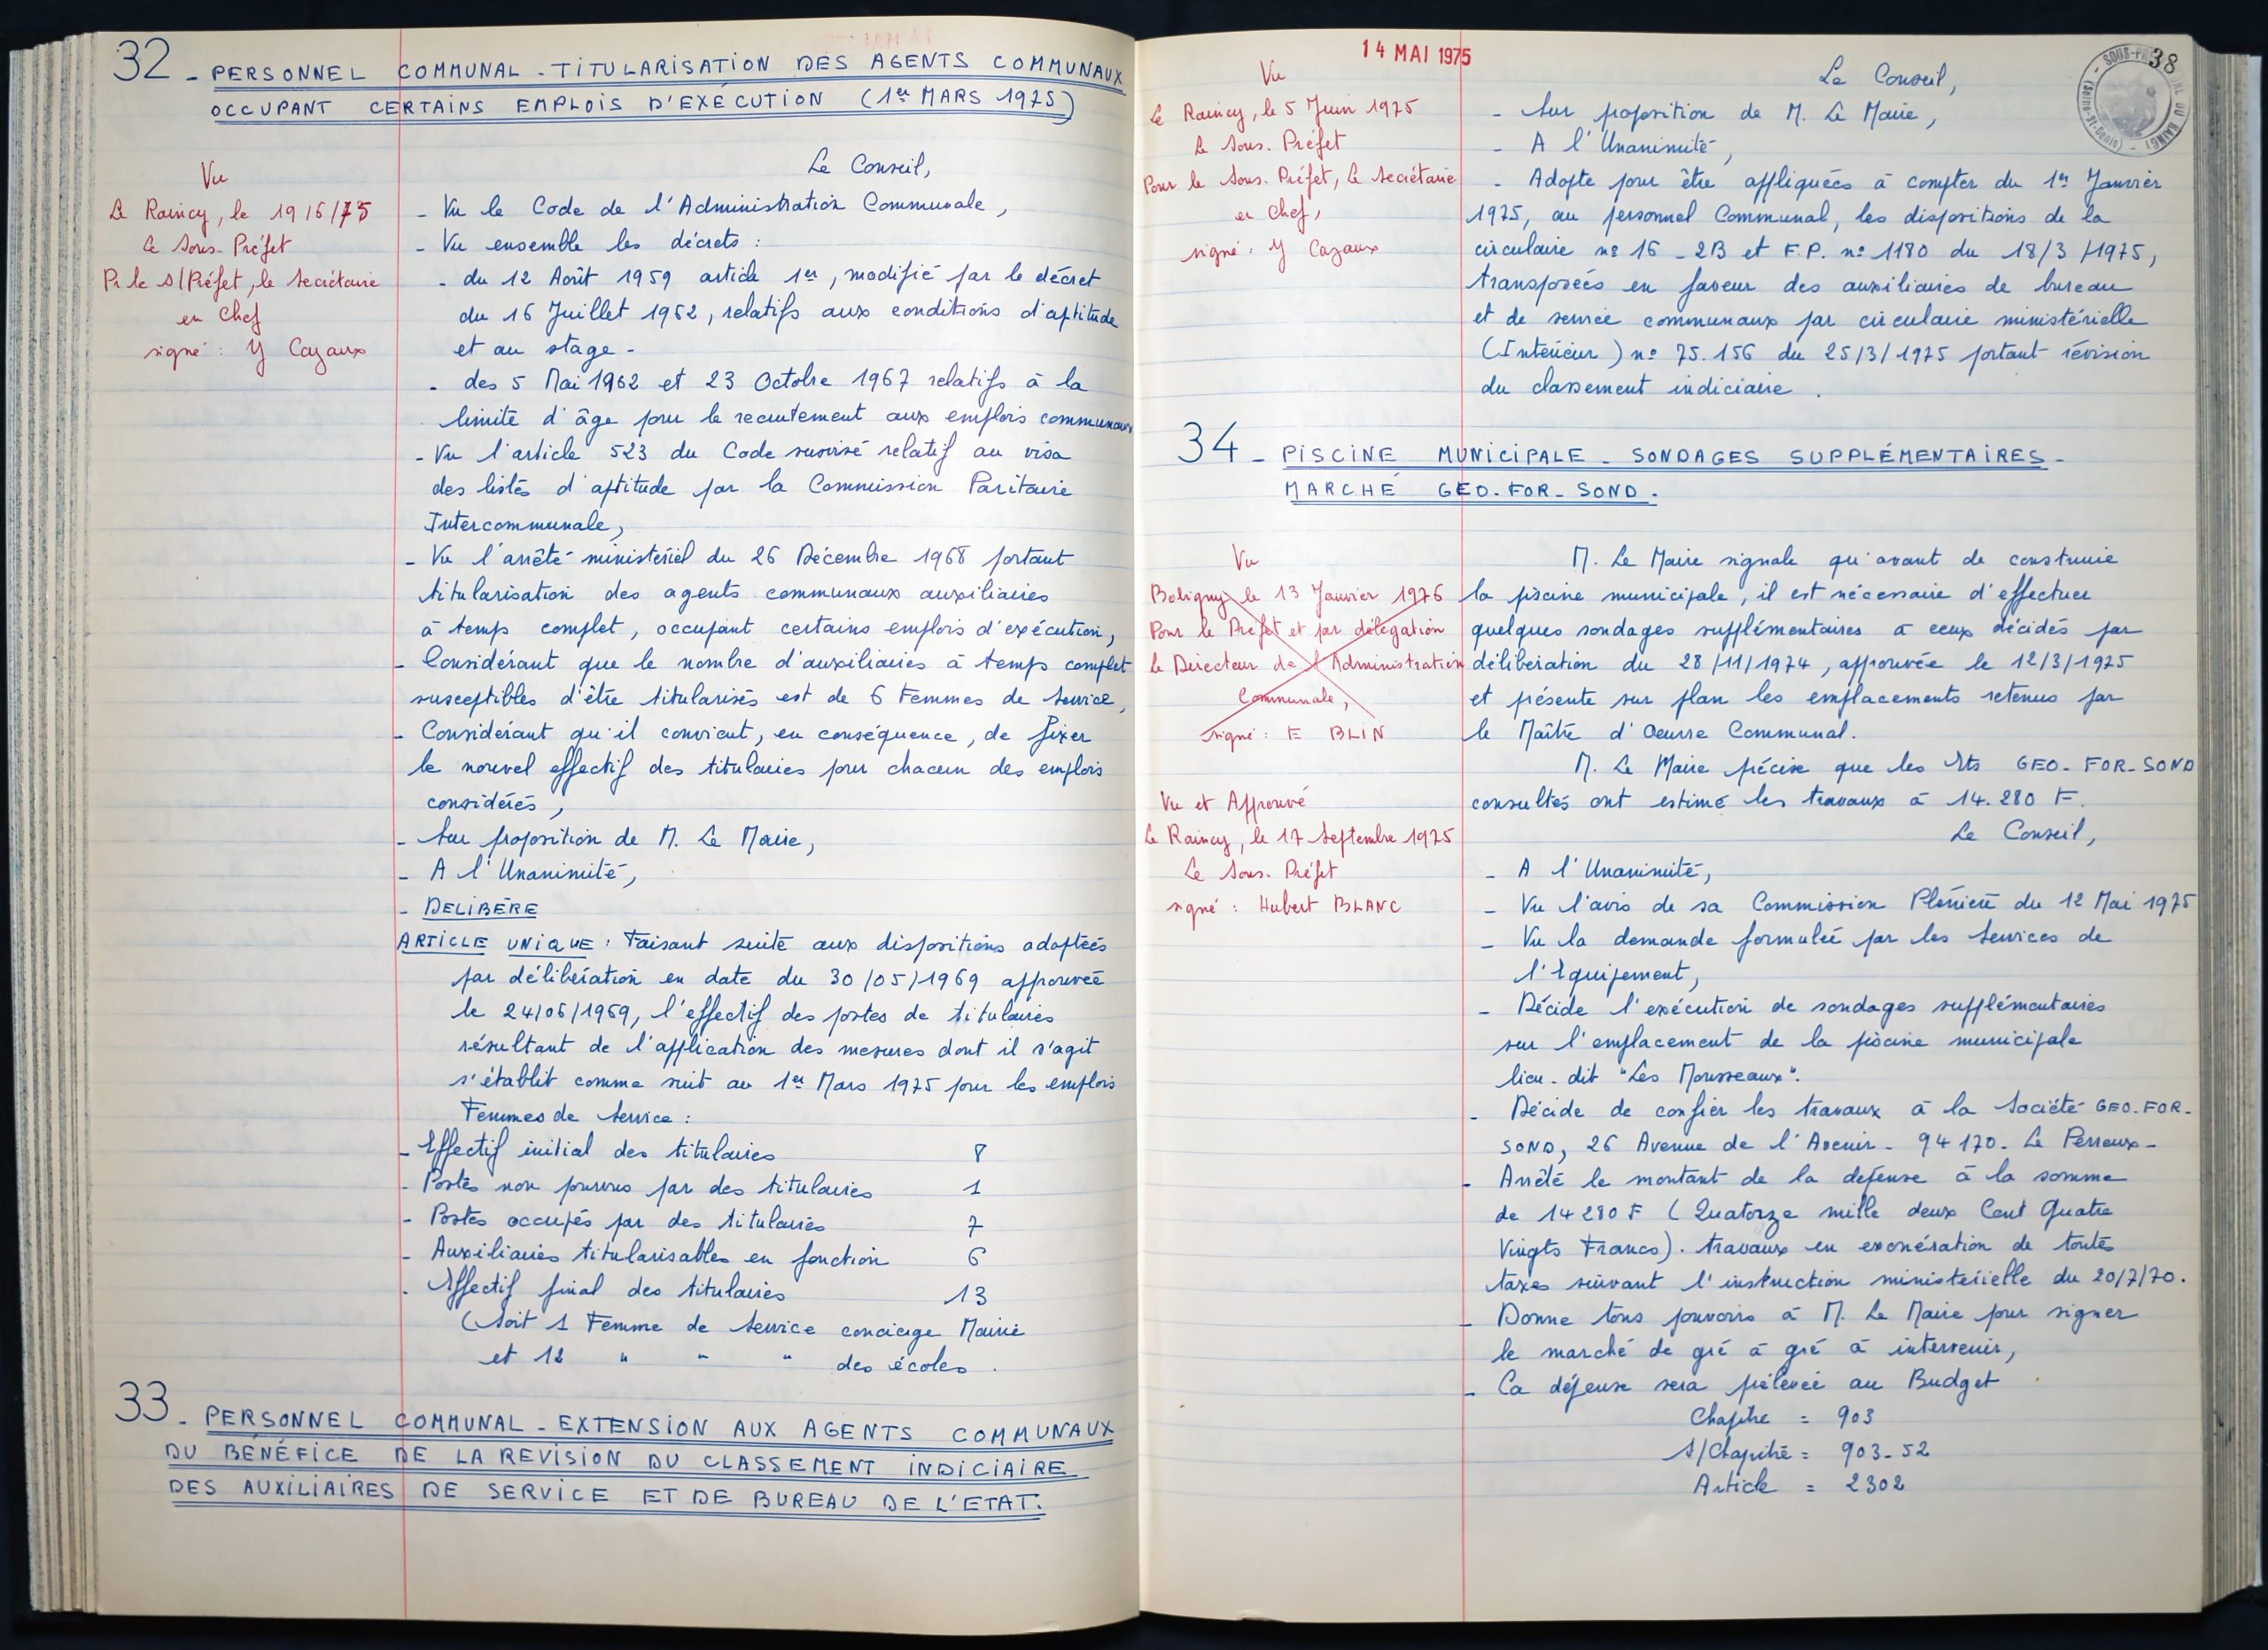 32 - PERSONNEL COMMUNAL - TITULARISATION DES AGENTS COMMUNAUX
OCCUPANT CERTAINS EMPLOIS D'EXÉCUTION (1er MARS 1975)
Vu
Le Raincy, le 19/6/75
Le Sous-Préfet
Pr le S/Préfet, le secrétaire
en Chef
signé : Y Cazaux
Le Conseil,
- Vu le Code de l'Administration Communale,
- Vu ensemble les décrets :
- du 12 Août 1959 article 1er, modifié par le décret
du 16 Juillet 1962, relatifs aux conditions d'aptitude
et au stage -
- des 5 Mai 1962 et 23 Octobre 1967 relatifs à la
limite d'âge pour le recrutement aux emplois communaux
- Vu l'article 523 du Code susvisé relatif au visa
des listes d'aptitude par la Commission Paritaire
Intercommunale,
- Vu l'arrêté ministériel du 26 Décembre 1968 portant
titularisation des agents communaux auxiliaires
à temps complet, occupant certains emplois d'exécution,
- Considérant que le nombre d'auxiliaires à temps complet
susceptibles d'être titularisés est de 6 Femmes de Service,
- Considérant qu'il convient, en conséquence, de fixer
le nouvel effectif des titulaires pour chacun des emplois
considérés,
- Sur proposition de M. Le Maire,
- A l'Unanimité,
- DELIBÈRE
ARTICLE UNIQUE : Faisant suite aux dispositions adoptées
par délibération en date du 30/05/1969 approuvée
le 24/06/1969, l'effectif des postes de titulaires
résultant de l'application des mesures dont il s'agit
s'établit comme suit au 1er Mars 1975 pour les emplois
Femmes de Service :
- Effectif initial des titulaires 8
- Postes non pourvus par des titulaires 1
- Postes occupés par des titulaires 7
- Auxiliaires titularisables en fonction 6
- Effectif final des titulaires 13
(Soit 1 Femme de Service concierge Mairie
et 12 " " " des écoles.
33 - PERSONNEL COMMUNAL - EXTENSION AUX AGENTS COMMUNAUX
DU BÉNÉFICE DE LA REVISION DU CLASSEMENT INDICIAIRE
DES AUXILIAIRES DE SERVICE ET DE BUREAU DE L'ETAT.
14 MAI 1975
38
SOUS-PRÉ DU RAINCY
(Seine-St-Denis)
Vu
Le Raincy, le 5 Juin 1975
Le Sous-Préfet
Pour le Sous-Préfet, le secrétaire
en Chef,
signé : Y Cazaux
Le Conseil,
- Sur proposition de M. Le Maire,
- A l'Unanimité,
- Adopte pour être appliquées à compter du 1er Janvier
1975, au personnel Communal, les dispositions de la
circulaire n° 16 - 2B et F.P. n° 1180 du 18/3/1975,
transposées en faveur des auxiliaires de bureau
et de service communaux par circulaire ministérielle
(Intérieur) n° 75.156 du 25/3/1975 portant révision
du classement indiciaire.
34 - PISCINE MUNICIPALE - SONDAGES SUPPLÉMENTAIRES -
MARCHÉ GEO-FOR-SOND.
Vu
Bobigny le 13 Janvier 1976
Pour le Préfet et par délégation
le Directeur de l'Administration
Communale,
signé : E BLIN
Vu et Approuvé
Le Raincy, le 17 Septembre 1975
Le Sous-Préfet
signé : Hubert BLANC
M. Le Maire signale qu'avant de construire
la piscine municipale, il est nécessaire d'effectuer
quelques sondages supplémentaires à ceux décidés par
délibération du 28/11/1974, approuvée le 12/3/1975
et présente sur plan les emplacements retenus par
le Maître d'Oeuvre Communal.
M. Le Maire précise que les Ets GEO-FOR-SOND
consultés ont estimé les travaux à 14.280 F.
Le Conseil,
- A l'Unanimité,
- Vu l'avis de sa Commission Plénière du 12 Mai 1975
- Vu la demande formulée par les Services de
l'Equipement,
- Décide l'exécution de sondages supplémentaires
sur l'emplacement de la piscine municipale
lieu-dit "Les Mousseaux".
- Décide de confier les travaux à la Société GEO.FOR-
SOND, 26 Avenue de l'Avenir - 94170 - Le Perreux -
- Arrête le montant de la dépense à la somme
de 14280 F (Quatorze mille deux Cent Quatre
Vingts Francs). travaux en exonération de toutes
taxes suivant l'instruction ministérielle du 20/7/70.
- Donne tous pouvoirs à M. Le Maire pour signer
le marché de gré à gré à intervenir,
- La dépense sera prélevée au Budget
Chapitre = 903
S/Chapitre = 903-52
Article = 2302